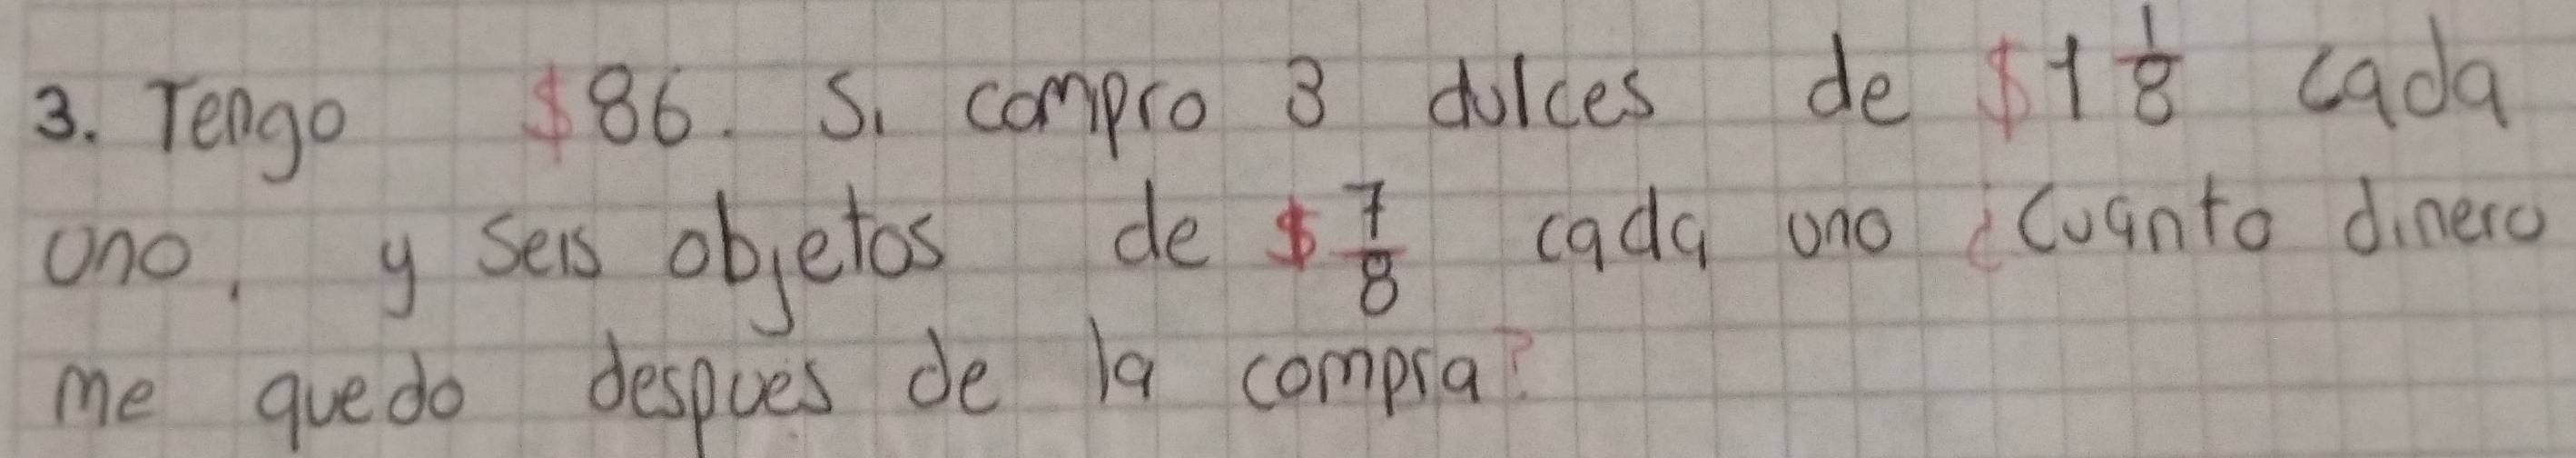 3. Tengo $86. Si compro 3 dulces de $1 1/8 cada
uno, y seis objetos de $ 7/8 cada uno ¿Cuanto dinero
me quedo despues de la compra?